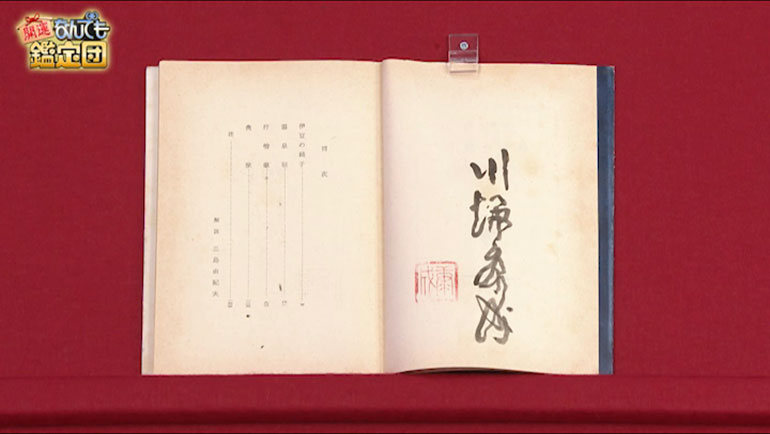 開運なんでも
鑑定団
川端康成
康成
目次
伊豆の踊子
温泉宿
抒情歌
禽獣
註
解説 三島由紀夫